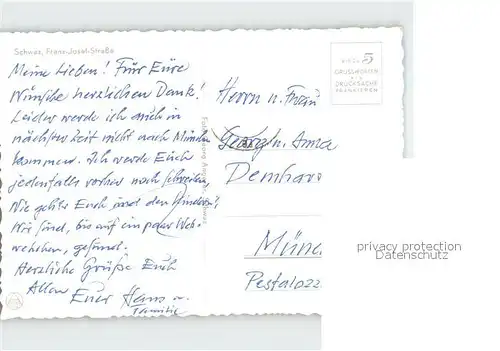 Schwaz, Franz-Josef-Straße
Meine Lieben! Für Eure
Wünsche herzlichen Dank!
Leider werde ich auch in
nächster Zeit nicht nach München
kommen. Ich werde Euch
jedenfalls vorher noch schreiben.
Wie geht's Euch und den Kindern?
Wir sind, bis auf ein paar Weh-
wehchen, gesund.
Herzliche Grüße Euch
Allen
Euer Hans u.
Familie
GRUSSWORTEN
ALS
DRUCKSACHE
FRANKIEREN
Herrn u. Frau
Georg u. Anna
Demhar
Münc
Pestalozz
privacy protection
Datenschutz